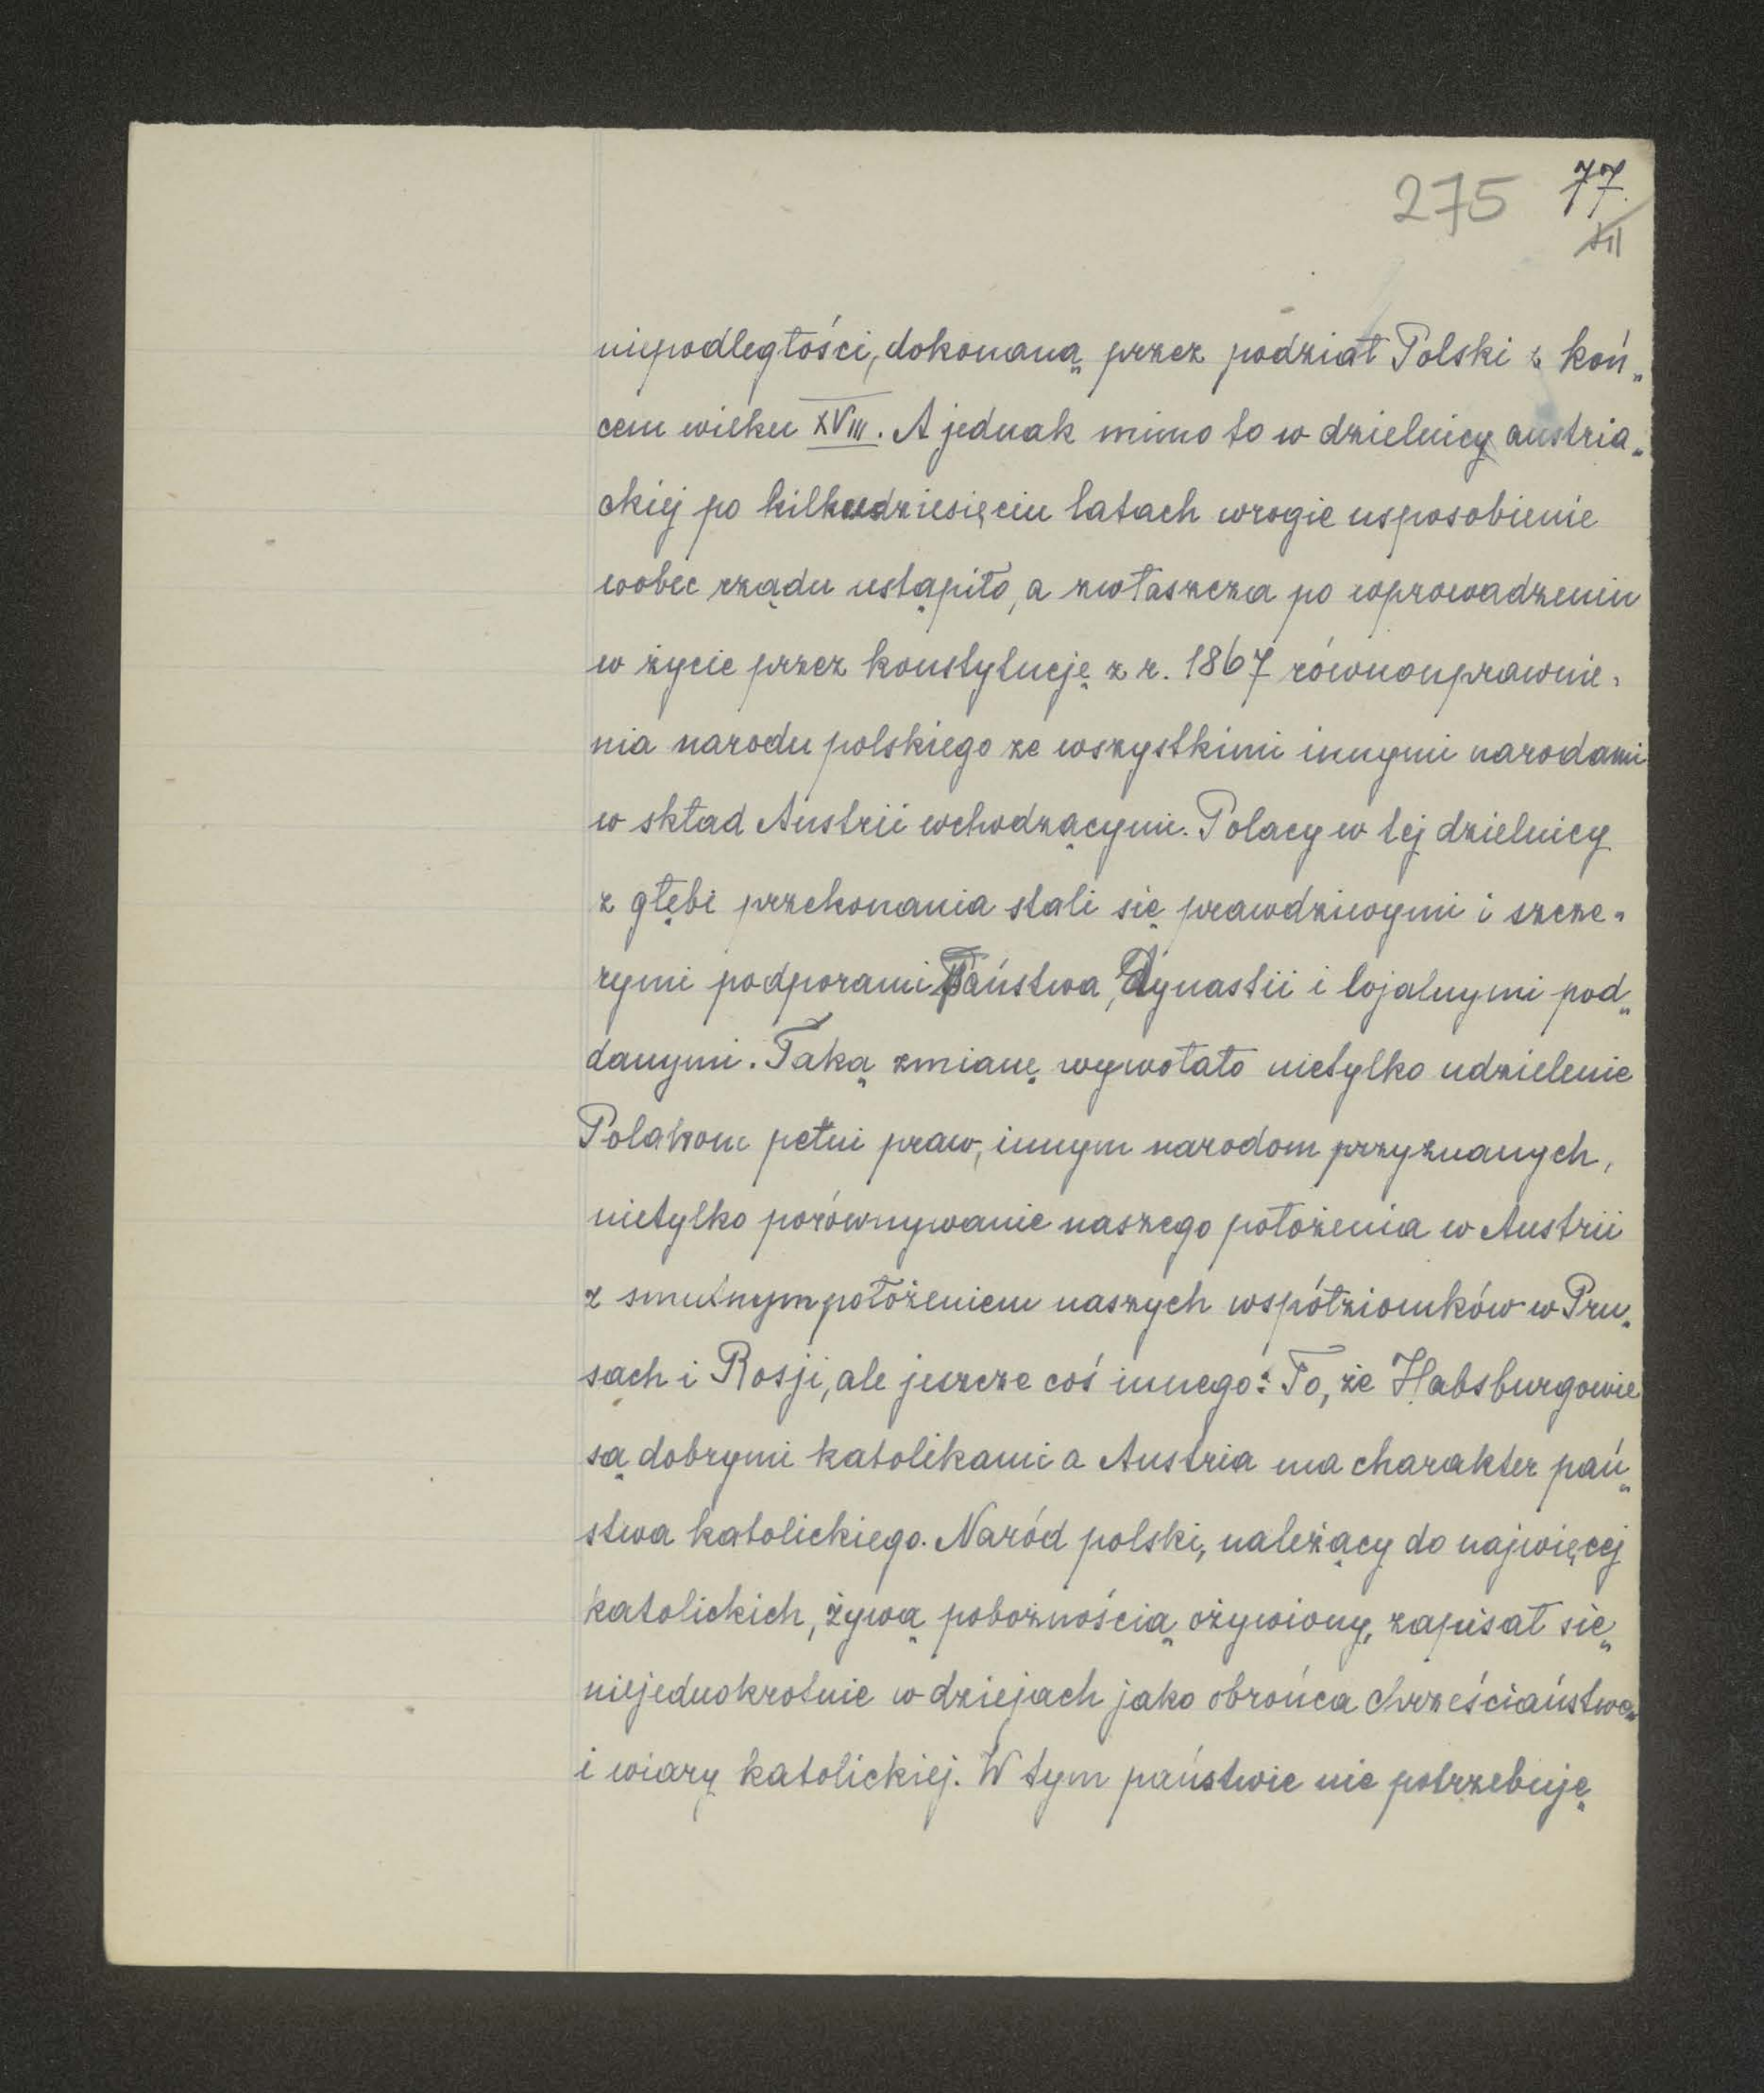 275 77.
XII
niepodległości, dokonaną przez podział Polski z koń„
cem wieku XVIII. A jednak mimo to w dzielnicy austria„
ckiej po kilkudziesięciu latach wrogie usposobienie
wobec rządu ustąpiło, a zwłaszcza po wprowadzeniu
w życie przez konstytucję z r. 1867 równouprawnie„
nia narodu polskiego ze wszystkimi innymi narodami
w skład Austrii wchodzącymi. Polacy w tej dzielnicy
z głębi przekonania stali się prawdziwymi i szcze„
rymi podporami Państwa, Dynastii i lojalnymi pod„
danymi. Taką zmianę wywołało nietylko udzielenie
Polakom pełni praw, innym narodom przyznanych,
nietylko porównywanie naszego położenia w Austrii
z smutnym położeniem naszych współziomków w Pru„
sach i Rosji, ale jeszcze coś innego: To, że Habsburgowie
są dobrymi katolikami a Austria ma charakter pań„
stwa katolickiego. Naród polski, należący do najwięcej
katolickich, żywą pobożnością ożywiony, zapisał się
niejednokrotnie w dziejach jako obrońca chrześciaństwa
i wiary katolickiej. W tym państwie nie potrzebuję